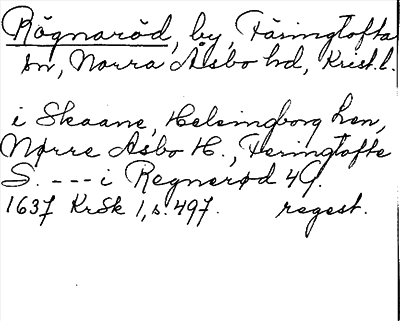 Rögnaröd, by, Färingtofta
sn, Norra Åsbo hd, Krist. l.
i Skaane, Helsingborg Len,
Nørre Asbo H., Feringtofte
S. --- i Regnerød 4 G.
1637 KrSk 1, s. 497. regest.